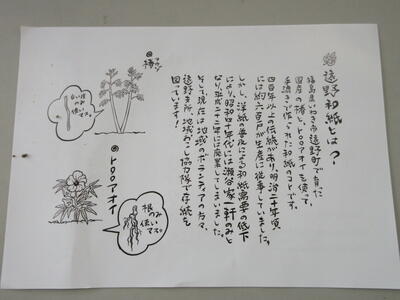 遠野和紙とは?
福島県いわき市遠野町で育た
国産の楮と、トロロアオイを使って、
手漉きで作られた和紙のコトです。
四百年以上の伝統があり、明治二十年頃
には約六百戸が生産に従事していました。
しかし、洋紙普及による和紙需要の低下
により、昭和四十年代には瀬谷家一軒のみと
なり、平成二十二年には廃業してしまいました。
そして現在は地域のボランティアの方々、
遠野支所、地域おこし協力隊で存続を
図っています!
◎楮
コウゾ
白い皮
のみ
使い
マス。
◎トロロアオイ
根のみ
使い
マス。